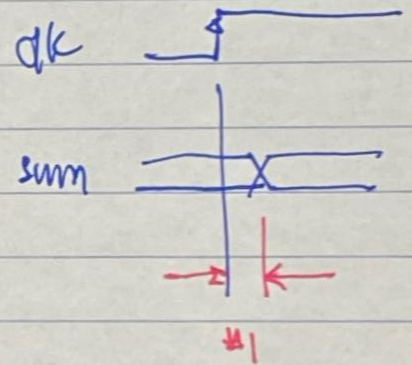 clk
sum
#1